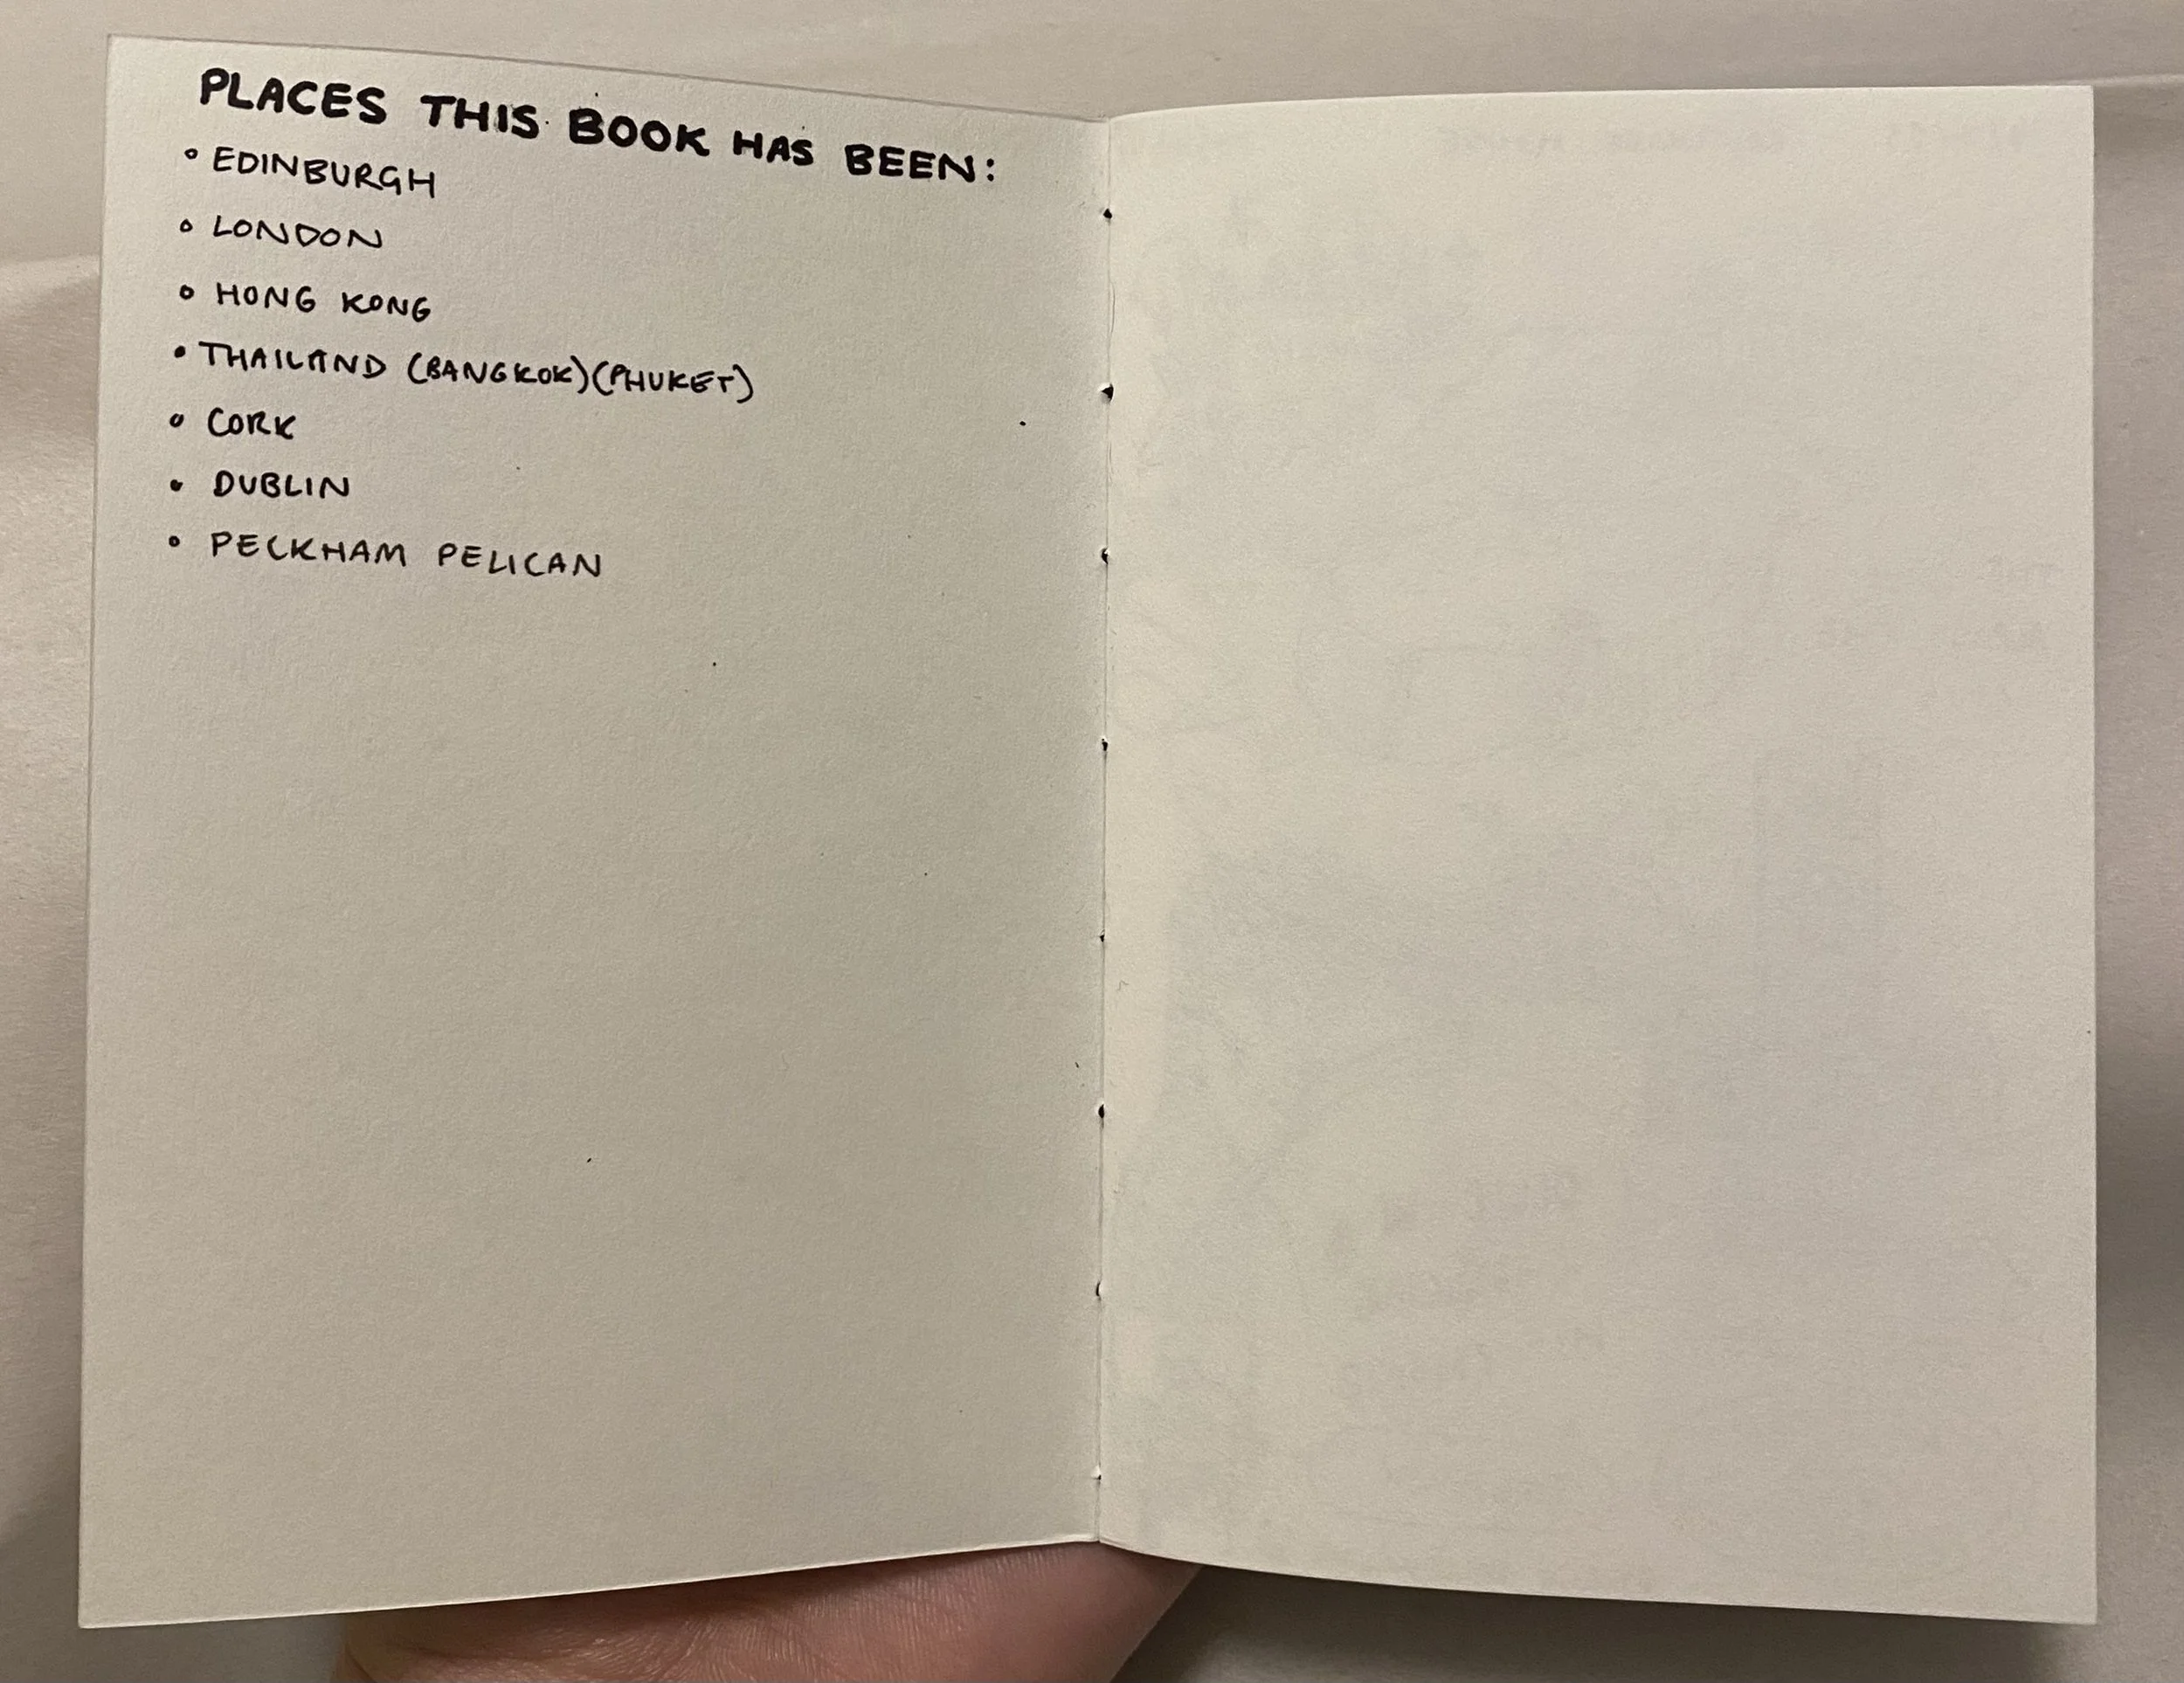 PLACES THIS BOOK HAS BEEN:
• EDINBURGH
• LONDON
• HONG KONG
• THAILAND (BANGKOK)(PHUKET)
• CORK
• DUBLIN
• PECKHAM PELICAN